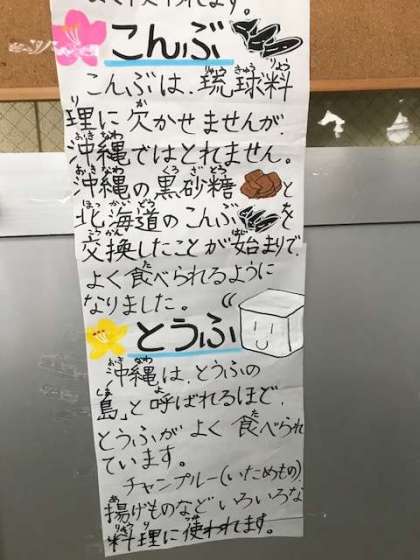 よく使われます。
こんぶ
こんぶは、琉球料
理に欠かせませんが、
沖縄ではとれません。
沖縄の黒砂糖と
北海道のこんぶを
交換したことが始まりで、
よく食べられるように
なりました。
とうふ
沖縄は、とうふの
島」と呼ばれるほど、
とうふがよく食べられ
ています。
チャンプルー(いためもの)、
揚げものなどいろいろな
料理に使われます。